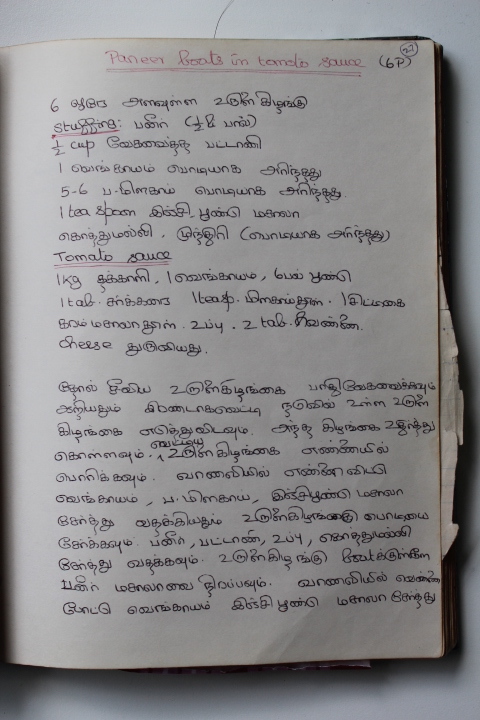 27
Paneer boats in tomato sauce (6P)
6 ஒரே அளவுள்ள உருளைகிழங்கு
Stuffing: பனீர் (½ l பால்)
½ cup வேகவைத்த பட்டாணி
1 வெங்காயம் பொடியாக அரிந்தது
5-6 ப.மிளகாய் பொடியாக அரிந்தது.
1 tea spoon இஞ்சி பூண்டு மசாலா
கொத்துமல்லி, முந்திரி (பொடியாக அரிந்தது)
Tomato sauce
1kg தக்காளி, 1 வெங்காயம், 6 பல் பூண்டு
1 tab. சர்க்கரை 1 teasp. மிளகாய்தூள். 1 சிட்டிகை
கரம் மசாலாதூள். உப்பு. 2 tab. வெண்ணை.
Cheese துருவியது.
தோல் சீவிய உருளைகிழங்கை பாதிவேகவைக்கவும்
ஆறியதும் இரண்டாகவெட்டி நடுவில் உள்ள உருளை
கிழங்கை எடுத்துவிடவும். அந்த கிழங்கை உதிர்த்து
கொள்ளவும். வெட்டிய உருளைகிழங்கை எண்ணெயில்
பொரிக்கவும். வாணலியில் எண்ணை விட்டு
வெங்காயம், ப.மிளகாய், இஞ்சிபூண்டு மசாலா
சேர்த்து வதக்கியதும் உருளைகிழங்கு பொடியை
சேர்க்கவும். பனீர், பட்டாணி, உப்பு, கொத்துமல்லி
சேர்த்து வதக்கவும். உருளைகிழங்கு boatக்குள்ளே
பனீர் மசாலாவை நிரப்பவும். வாணலியில் வெண்ணை
போட்டு வெங்காயம் இஞ்சி பூண்டு மசாலா சேர்த்து